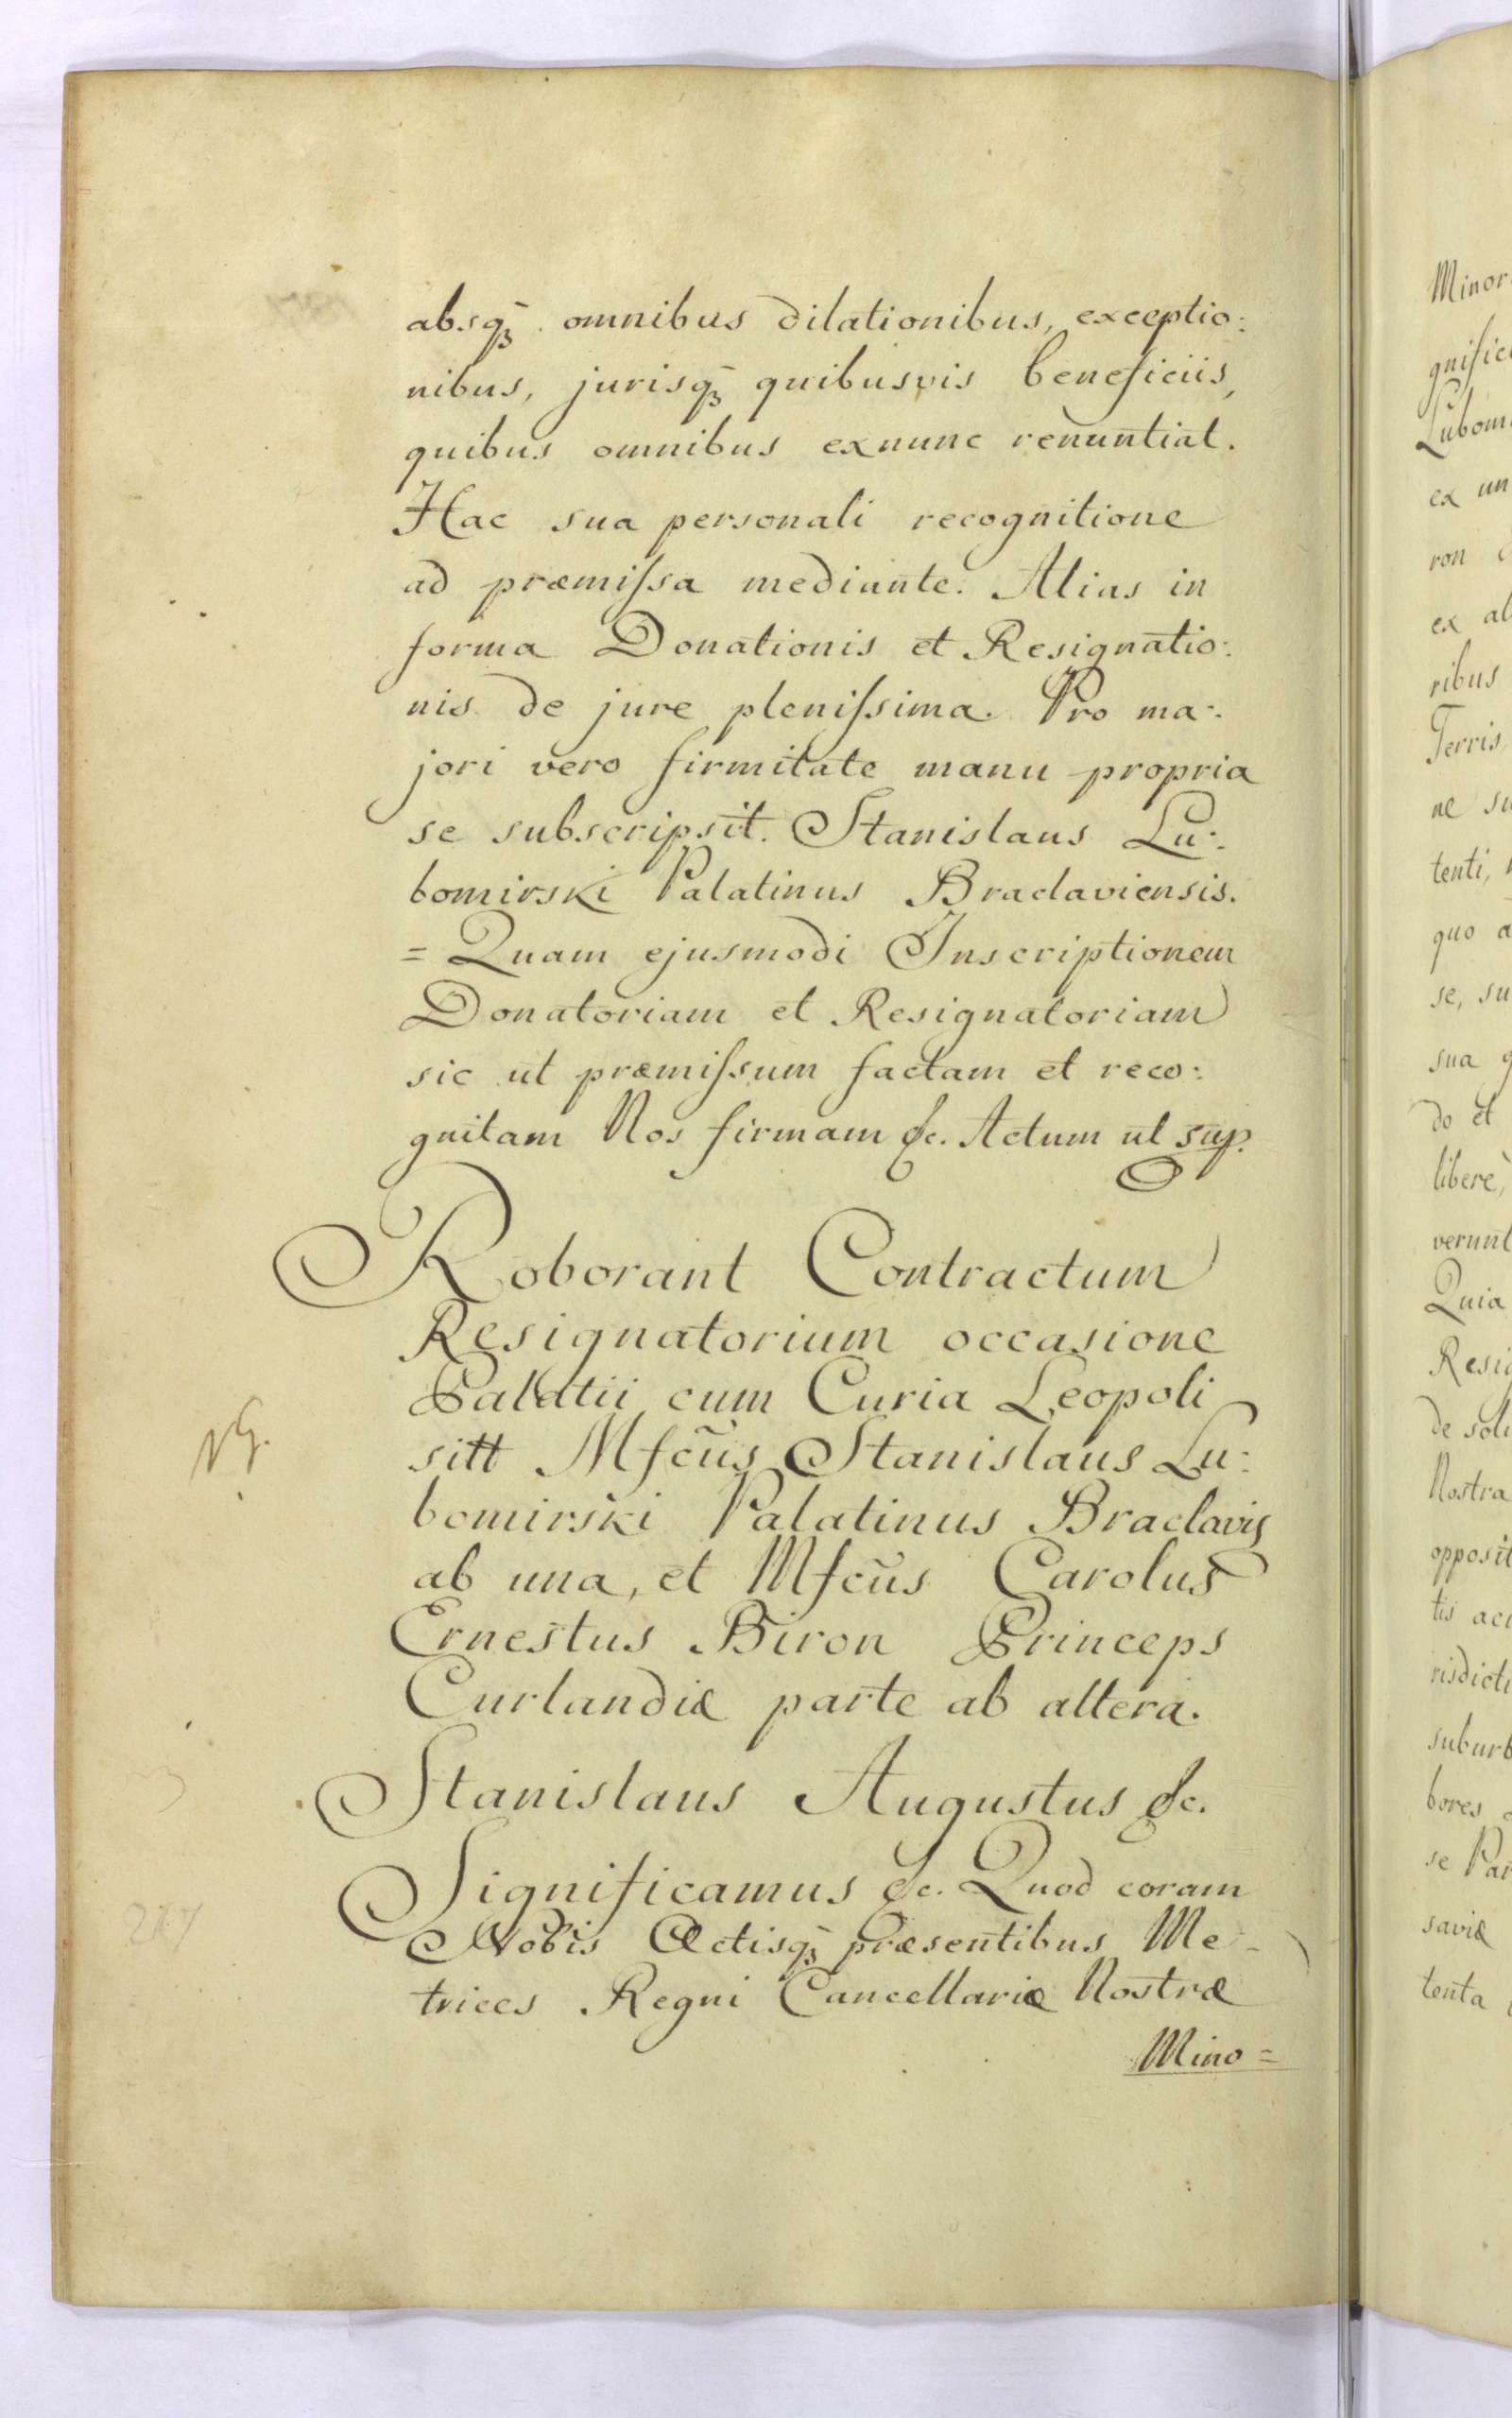 absqꝫ omnibus dilationibus, exceptio:
nibus, jurisqꝫ quibusvis beneficiis,
quibus omnibus exnunc renuntiat.
Hac sua personali recognitione
ad præmissa mediante. Alias in
forma Donationis et Resignatio:
nis de jure plenissima. Pro ma:
jori vero firmitate manu propria
se subscripsit. Stanislaus Lu:
bomirski Palatinus Braclaviensis.
= Quam ejusmodi Inscriptionem
Donatoriam et Resignatoriam
sic ut præmissum factam et reco:
gnitam Nos firmam &c. Actum ut sup.
Roborant Contractum
Resignatorium occasione
Palatii cum Curia Leopoli
sitt Mfcũs Stanislaus Lu:
bomirski Palatinus Braclavis
ab una, et Mfcũs Carolus
Ernestus Biron Princeps
Curlandiæ parte ab altera.
Stanislaus Augustus &c.
Significamus &c. Quod coram
Nobis Actisqꝫ præsentibus Me-
trices Regni Cancellariæ Nostræ
Mino=
Minor
gnifici
Lubom
ex un
ron
ex al
ribus
Terris,
ne su
tenti,
quo a
se, su
sua q
do et
liberè,
verunt
Quia
Resig
de soli
Nostra
opposit
tis acc
risdicti
suburb
bores
se Par
saviæ
tenta